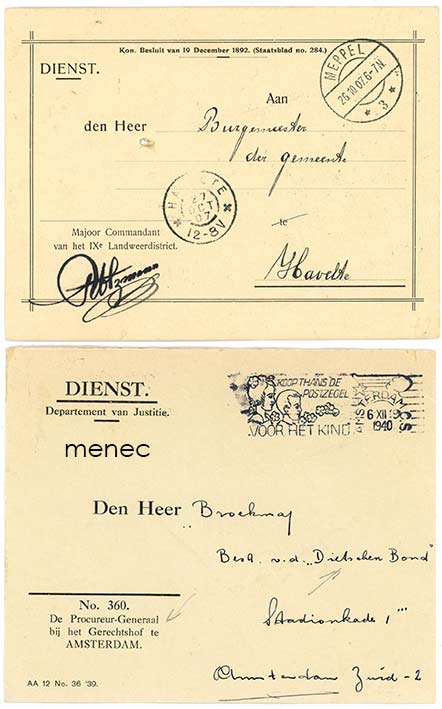 Kon. Besluit van 19 December 1892. (Staatsblad no. 284.)
DIENST.
MEPPEL
26.10.07.6-7N.
* 3 *
Aan
den Heer Burgemeester
der gemeente
te
Havelte
27
OCT
07
12-8V
Majoor Commandant
van het IXe Landweerdistrict.
DIENST.
Departement van Justitie.
menec
KOOP THANS DE
POSTZEGEL
VOOR HET KIND
AMSTERDAM
6 XII
1940
Den Heer Broekmaj
v.d. „Dietschen Bond"
Stadionkade 1
No. 360.
De Procureur-Generaal
bij het Gerechtshof te
AMSTERDAM.
Amsterdam Zuid-2
AA 12 No. 36 '39.